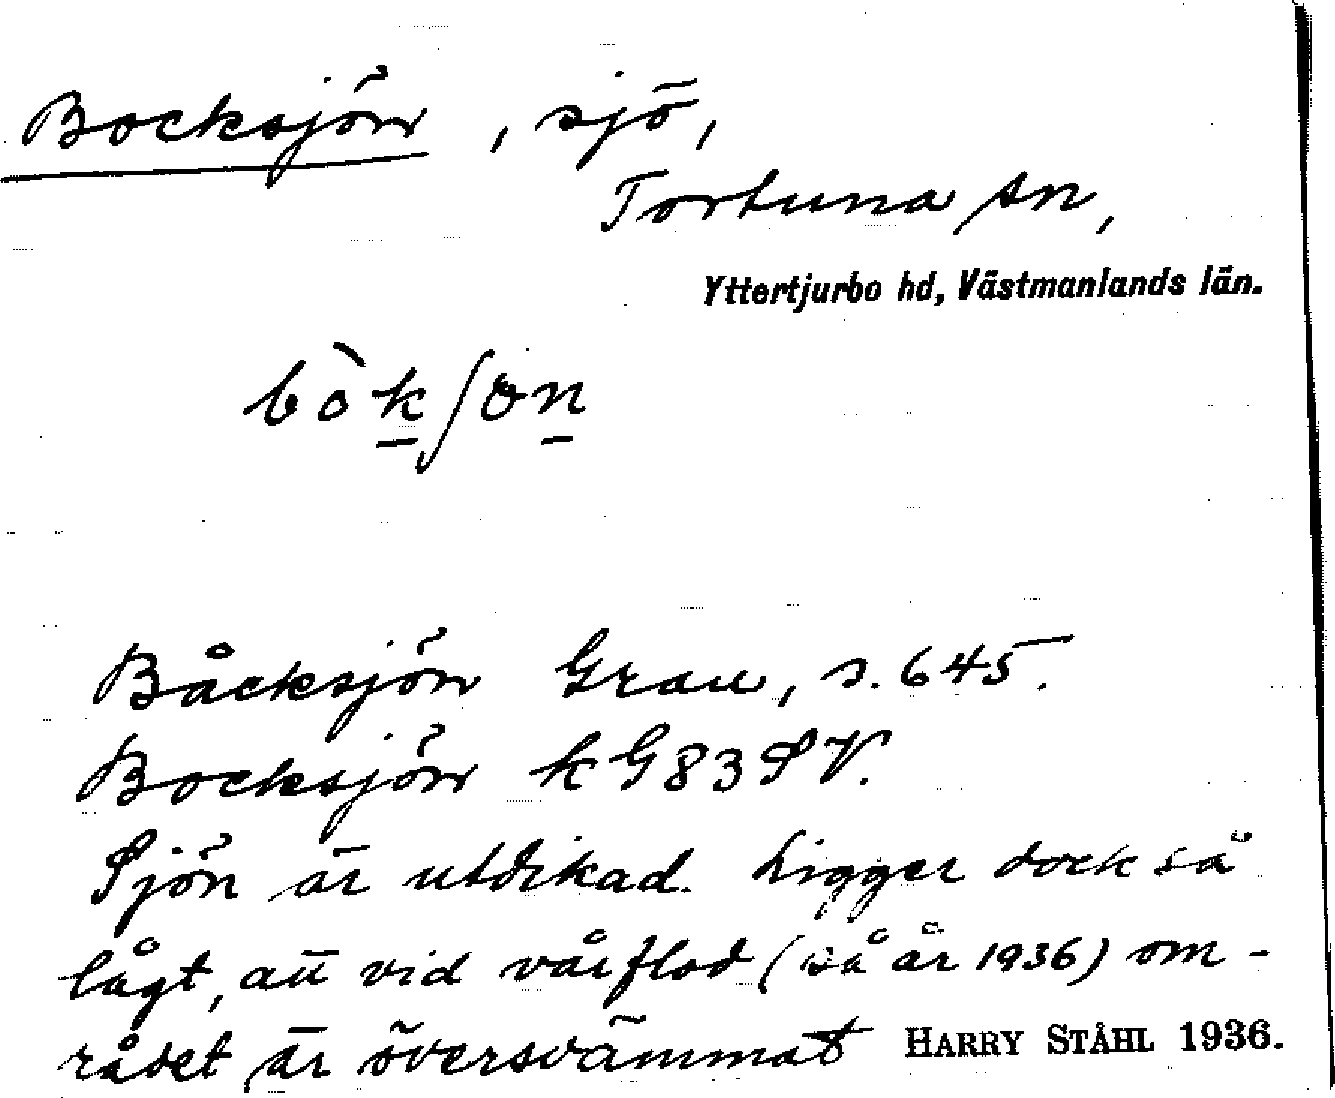 Bocksjön, sjö,
Tortuna sn,
Yttertjurbo hd, Västmanlands län.
bòkʃön
Båcksjön Grau, s. 645.
Bocksjön kG83SV.
Sjön är utdikad. Ligger dock så
lågt, att vid vårflod (så år 1936) om-
rådet är översvämmat HARRY STÅHL 1936.